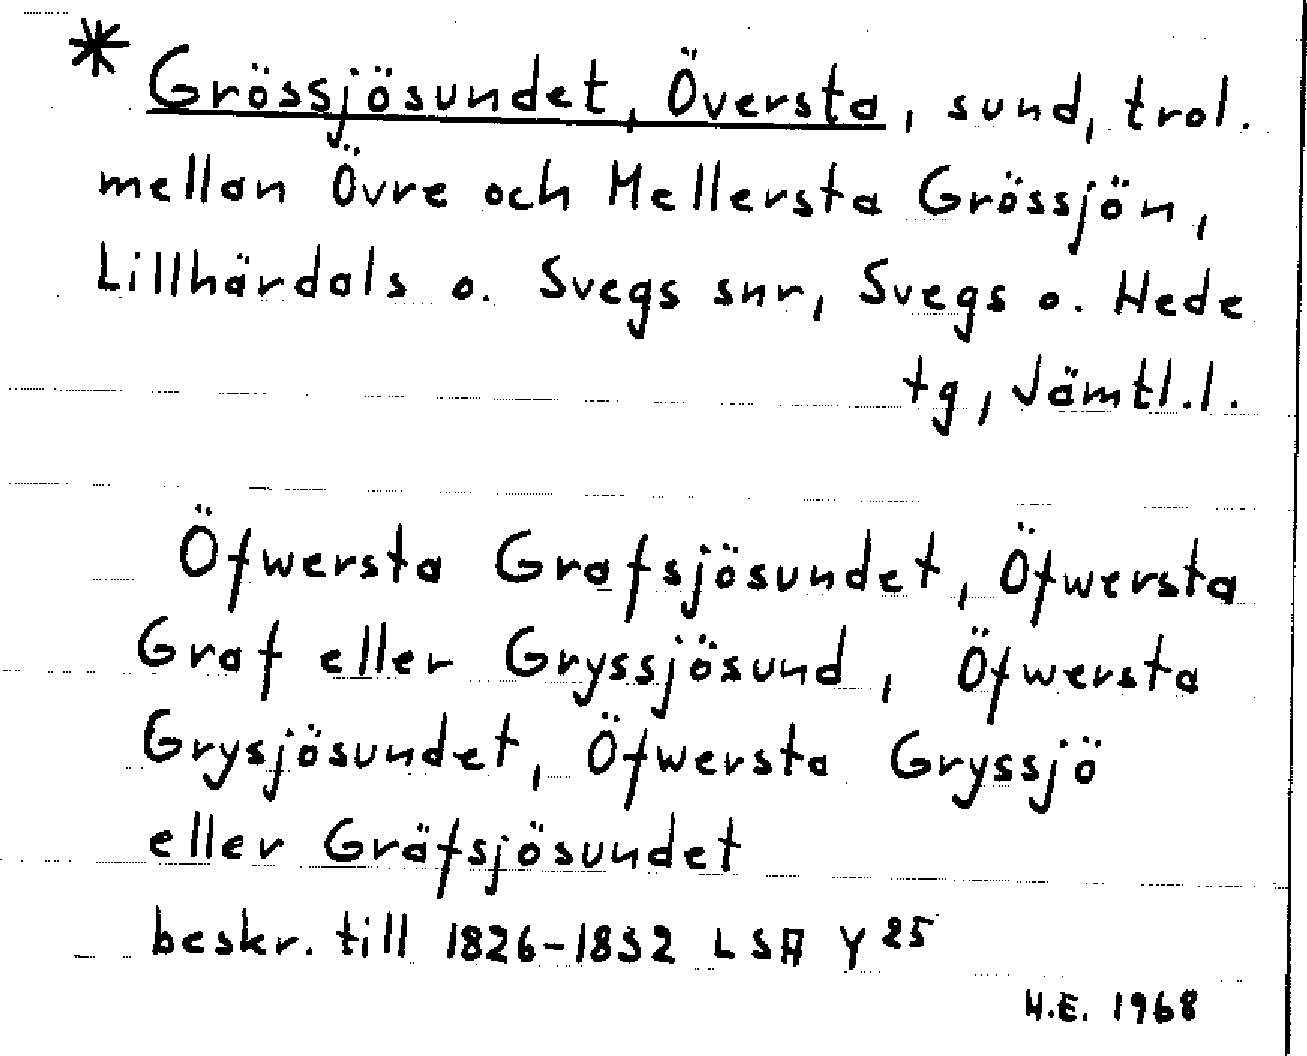 * Grössjösundet, Översta, sund, trol.
mellan Övre och Mellersta Grössjön,
Lillhärdals o. Svegs snr, Svegs o. Hede
tg, Jämtl.l.
Öfwersta Grafsjösundet, Öfwersta
Graf eller Gryssjösund, Öfwersta
Grysjösundet, Öfwersta Gryssjö
eller Gräfsjösundet
beskr. till 1826-1832 LSA Y 25
H.E. 1968